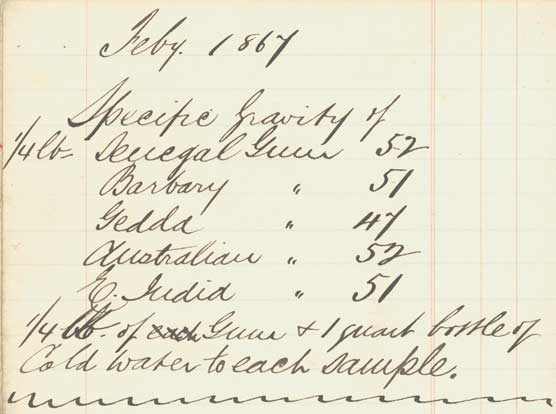 Feby. 1867
Specific Gravity of
1/4 lb- Senegal Gum 52
Barbary " 51
Gedda " 47
Australian " 52
E. India " 51
1/4 lb. of each Gum & 1 quart bottle of
Cold water to each sample.